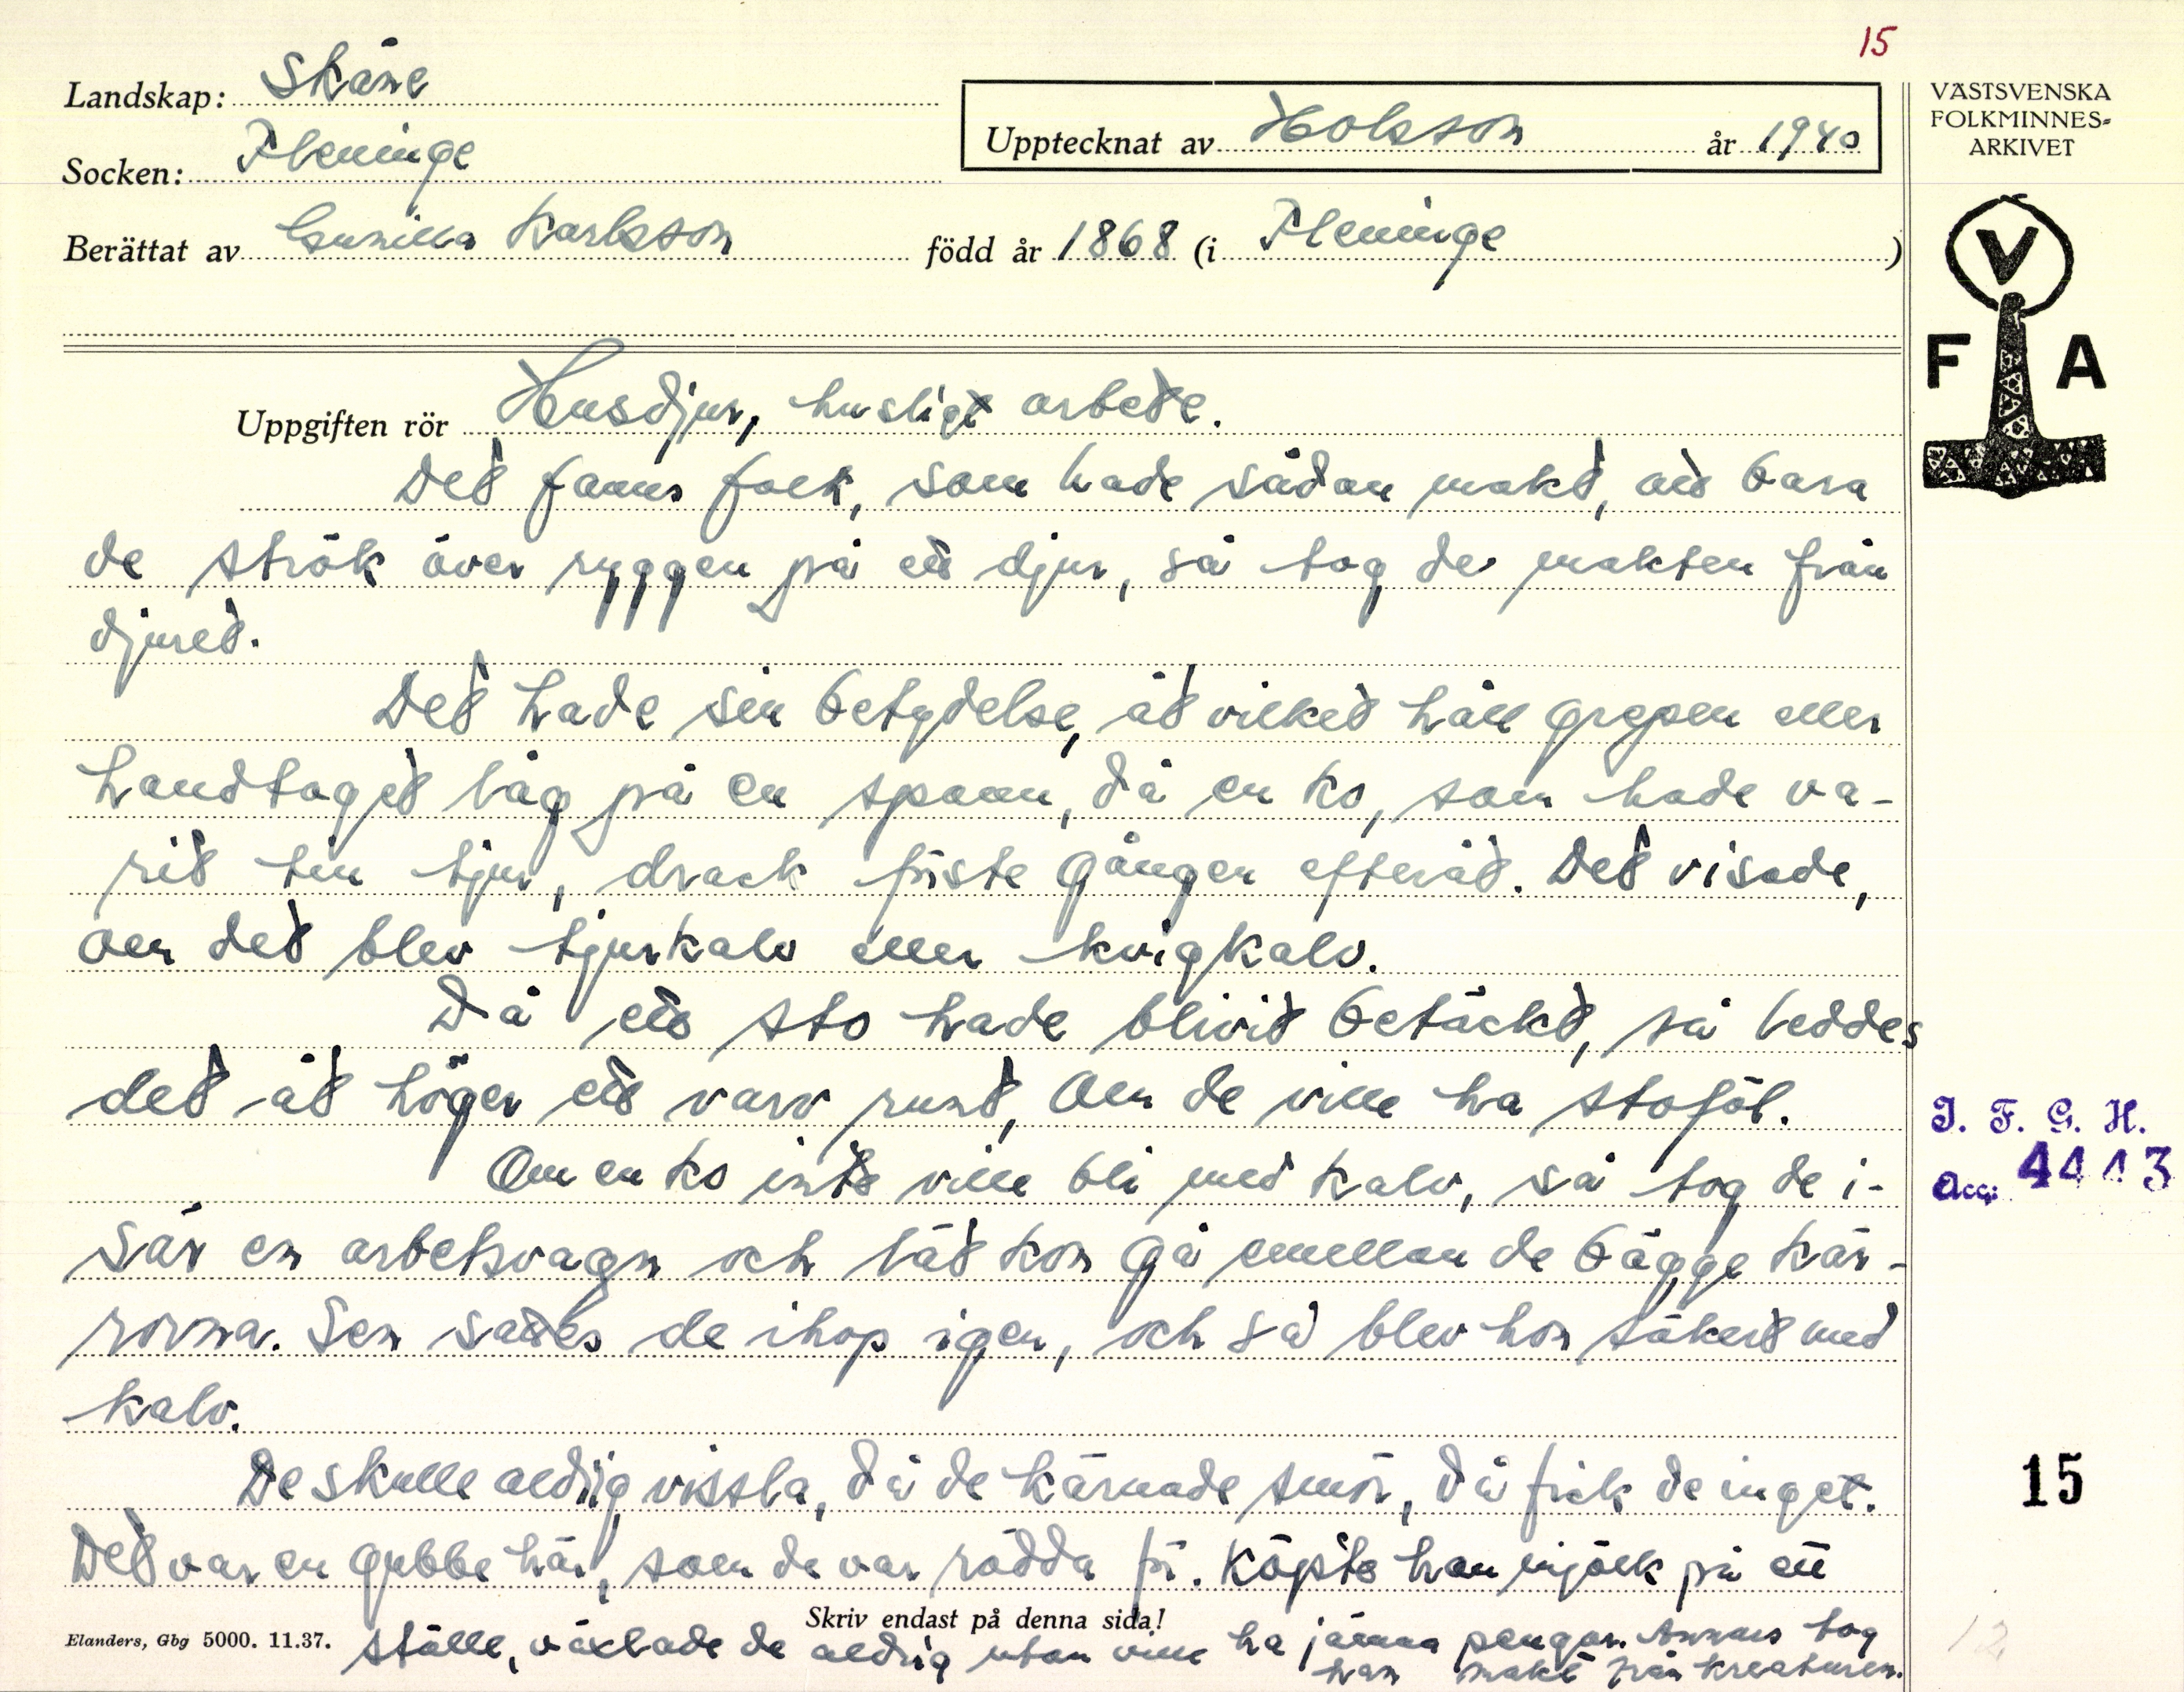 15
Landskap: Skåne
Upptecknat av Holsson år 1940
VÄSTSVENSKA
FOLKMINNES-
ARKIVET
Socken: Fleninge
Berättat av Gunilla Karlsson född år 1868 (i Fleninge)
V
F A
Uppgiften rör Husdjur, husligt arbete.
Det fanns folk, som hade sådan makt, att bara
de strök över ryggen på ett djur, så tog de makten från
djuret.
Det hade sin betydelse, åt vilket håll grepen eller
handtaget låg på en spann, då en ko, som hade va-
rit tin tjur, drack förste gången efteråt. Det visade,
om det blev tjurkalv eller kvigkalv.
Då ett sto hade blivit betäckt, så leddes
det åt höger ett varv runt, om de ville ha stoföl.
Om en ko inte ville bli med kalv, så tog de i-
sär en arbetsvagn och lät kon gå emellan de bägge kär-
rorna. Sen sattes de ihop igen, och så blev hon säkert med
kalv.
De skulle aldrig vissla, då de kärnade smör, då fick de inget.
Det var en gubbe här, som de var rädda för. Köpte han mjölk på ett
ställe, växlade de aldrig utan ville ha jämna pengar. Annars tog
han makt från kreaturen.
Skriv endast på denna sida!
Elanders, Gbg 5000. 11.37.
I. F. G. H.
Acc: 4443
15
12